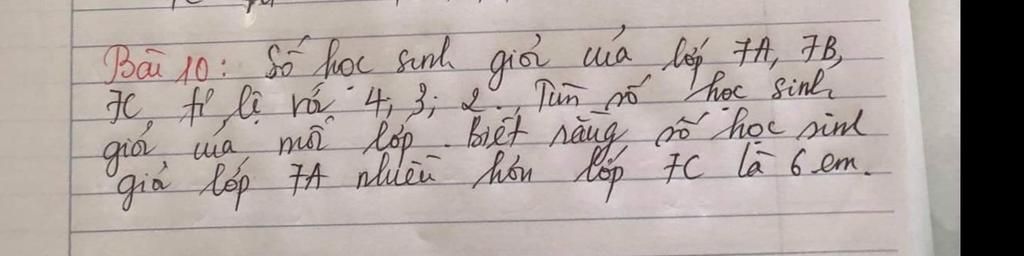 Bài 10: Số học sinh giỏi của lớp 7A, 7B,
7C, tỉ lệ với 4; 3; 2. Tìm số học sinh
giỏi của mỗi lớp. Biết rằng số học sinh
giỏi lớp 7A nhiều hơn lớp 7C là 6 em.